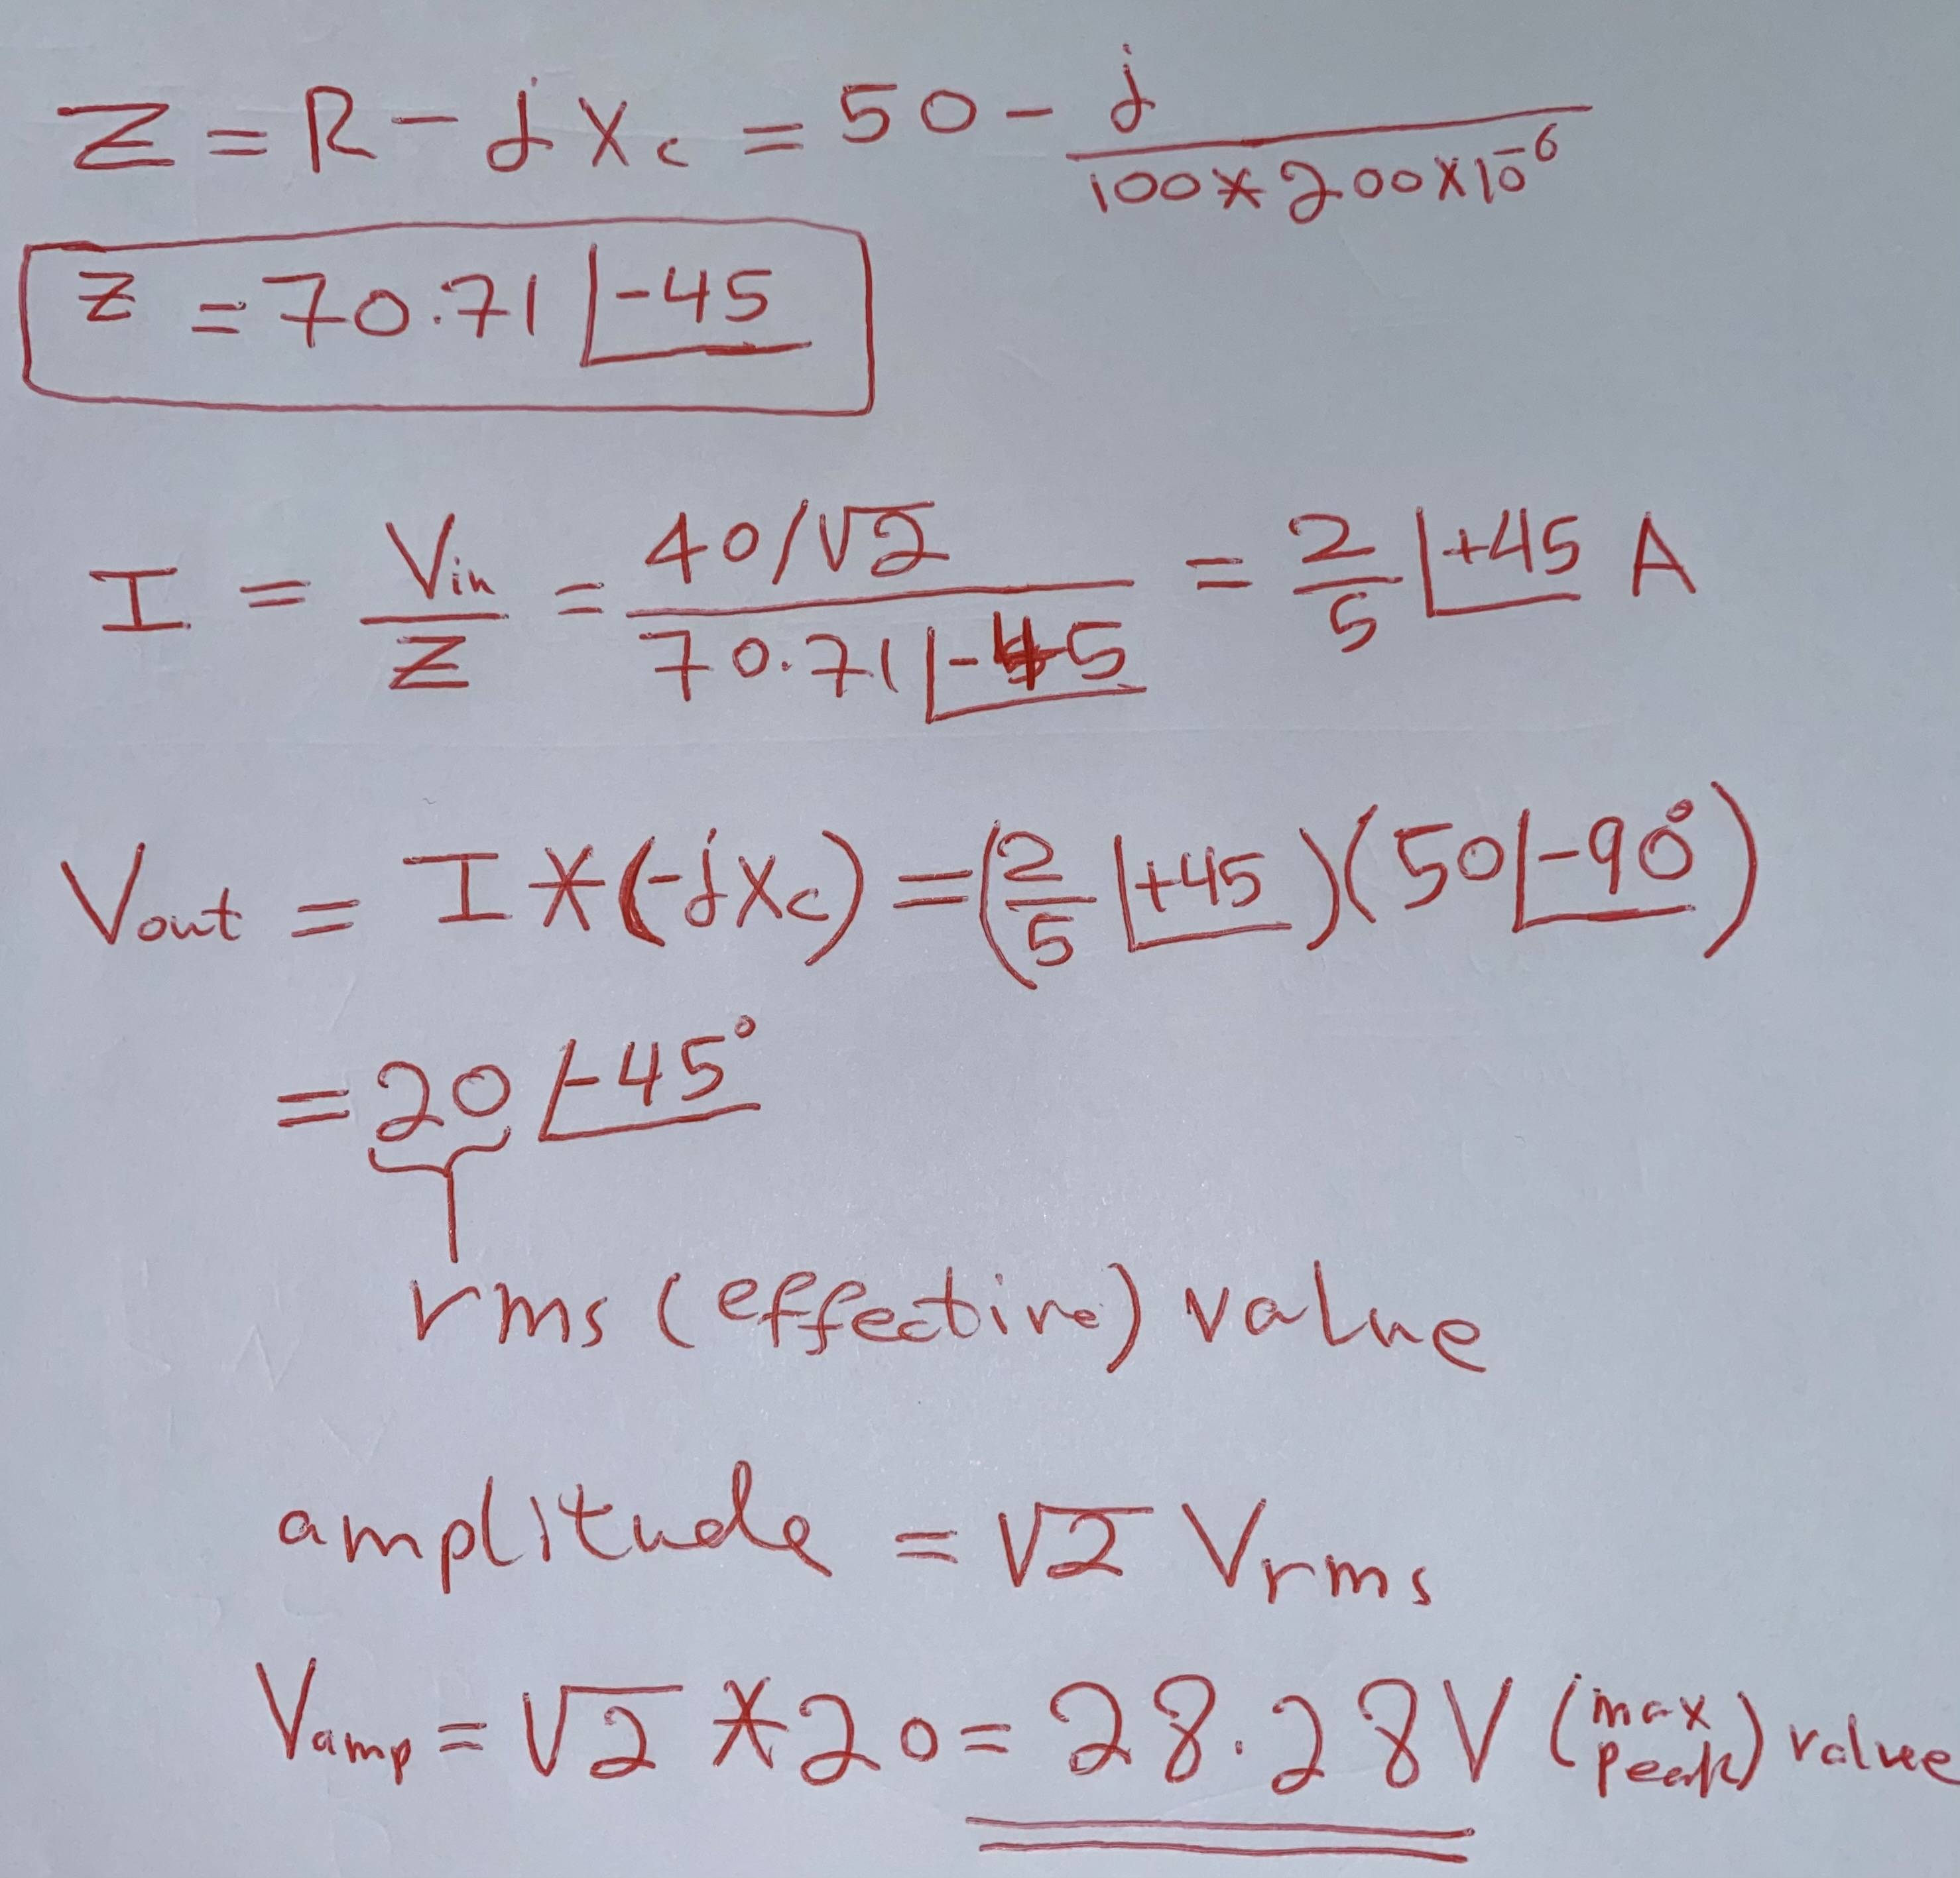 Z = R - jXc = 50 - j / 100*200×10^-6
Z = 70.71 ∠-45
I = Vin / Z = 40/√2 / 70.71∠-45 = 2/5 ∠+45 A
Vout = I*(-jXc) = (2/5 ∠+45)(50∠-90°)
= 20 ∠-45°
rms (effective) value
amplitude = √2 Vrms
Vamp = √2 * 20 = 28.28V (max peak) value